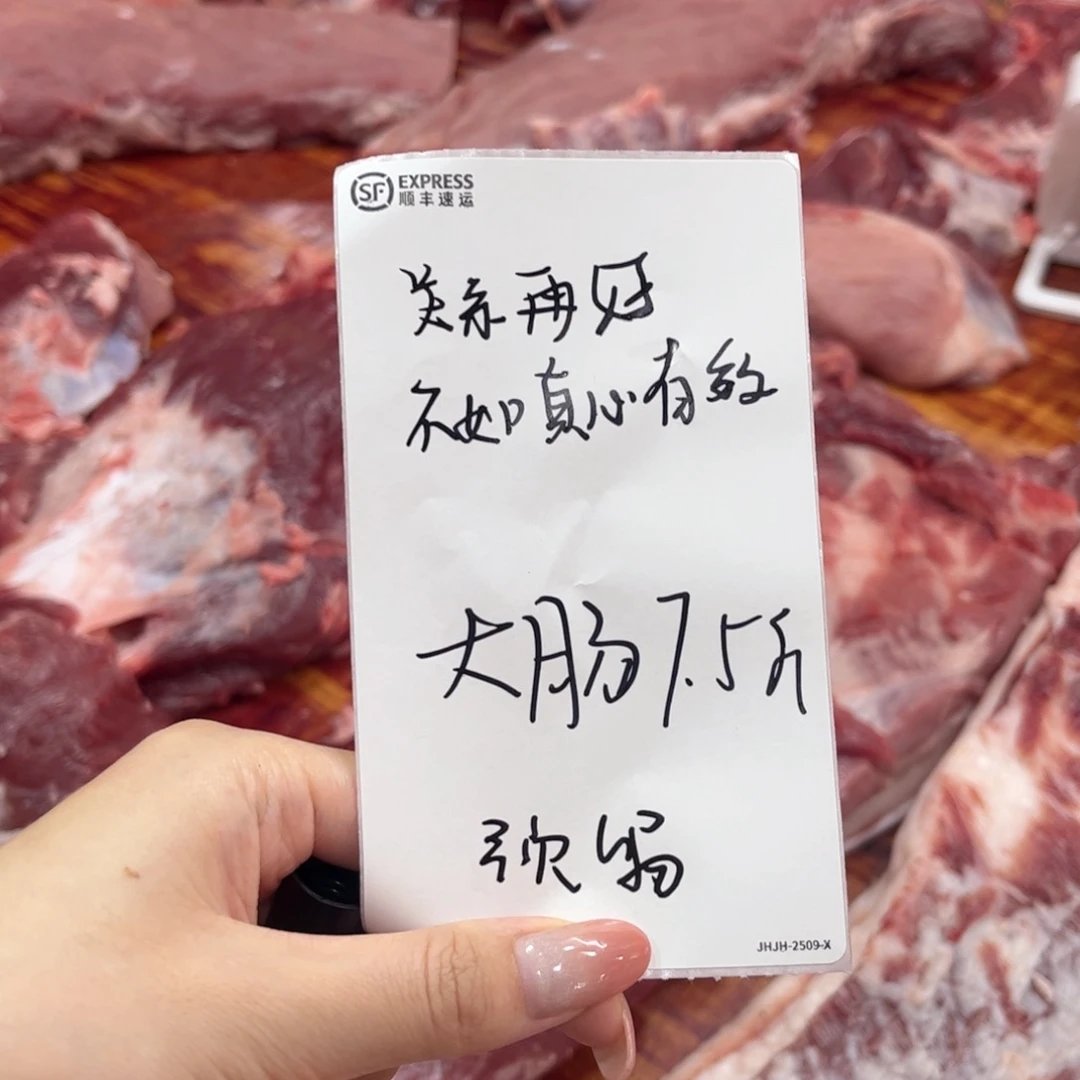 SF EXPRESS
顺丰速运
关系再好
不如真心有效
大肠7.5斤
JHJH-2509-X